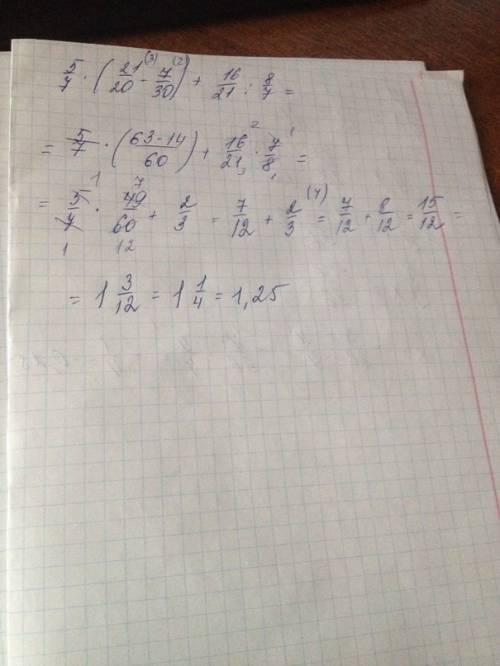 5/7 · (21/20 (3) - 7/30 (2)) + 16/21 : 8/7 =
= 5/7 · (63-14/60) + 16/21 2 3 · 7/8 1 1 =
= 5/7 1 1 · 49/60 7 12 + 2/3 = 7/12 + 2/3 (4) = 7/12 + 8/12 = 15/12 =
= 1 3/12 = 1 1/4 = 1,25